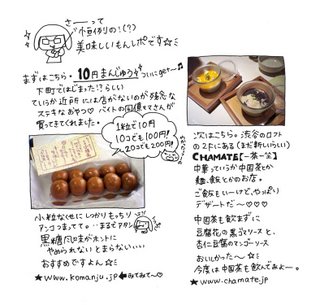 さーって
恒例の!(?)
美味しいもんレポです☆ミ
まずはこちら。10円まんじゅうをついにget〜♪
下町ではじまった!?らしい
ていうか近所には店がないのが残念な
ステキなおやつ♡バイトの
さんが
買ってきてくれました。
1粒で10円
10コでも100円!
20コでも200円!
小粒なくせにしっかりもっちり
アンコつまってる…まるでアタシ
黒糖風味がホントに
やめられないとまらない…
おすすめですよん☆ミ
★www.komanju.jp←みてみて〜♡
次はこちら。渋谷のロフト
の2Fにある(まだ新しいらしい)
CHAMATE[一茶一坐]
中華っていうか中国茶とか
麺、飯とかのお店。
ご飯もいいけど、やっぱり
デザートだ〜♡♡♡
中国茶も飲まずに
豆腐花の黒ゴマソースと
杏仁豆腐のマンゴーソース
おいしかった〜☆ミ
今度は中国茶も飲んでみよー。
★www.chamate.jp